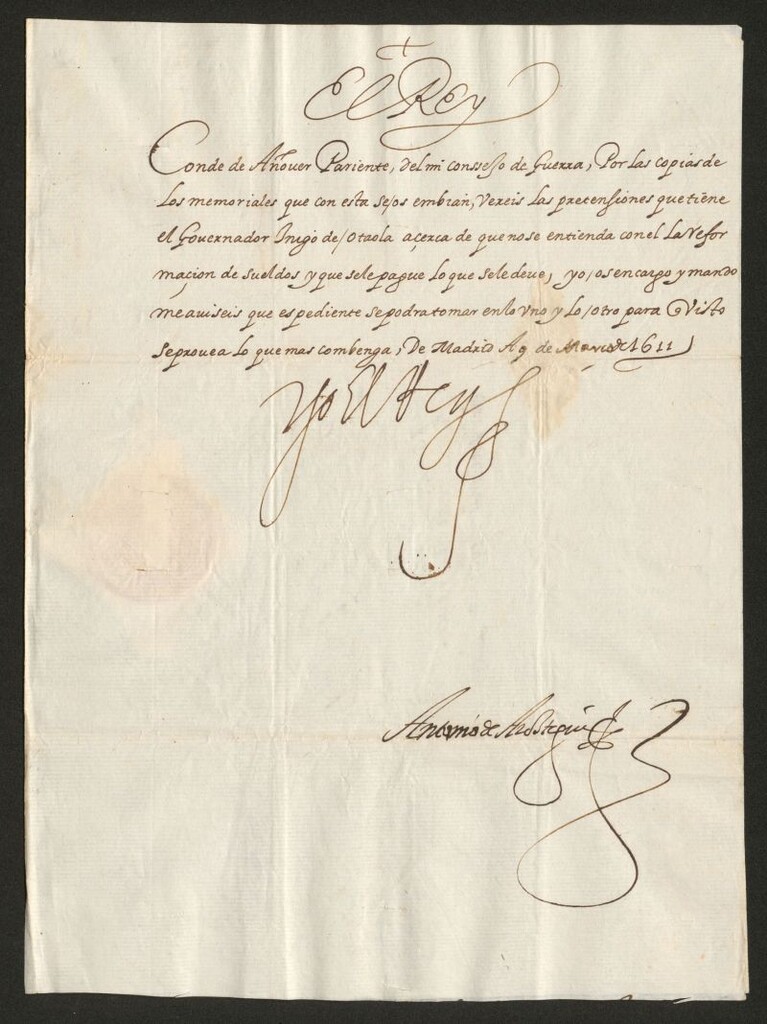 El Rey
Conde de Añover Pariente, del mi conssejo de Guerra, Por las copias de
los memoriales que con esta se/os embian, vereis las pretensiones que tiene
el Governador Inigo de/otaola açerca de que no se entienda con el la refor
maçion de sueldos y que se le pague lo que se le deve, yo/os encargo y mando
me aviseis que espediente se podra tomar en lo uno y lo/otro para Visto
se provea lo que mas combenga, De Madrid A 9 de de 1611
Yo El Rey
Antonio de Arostegui